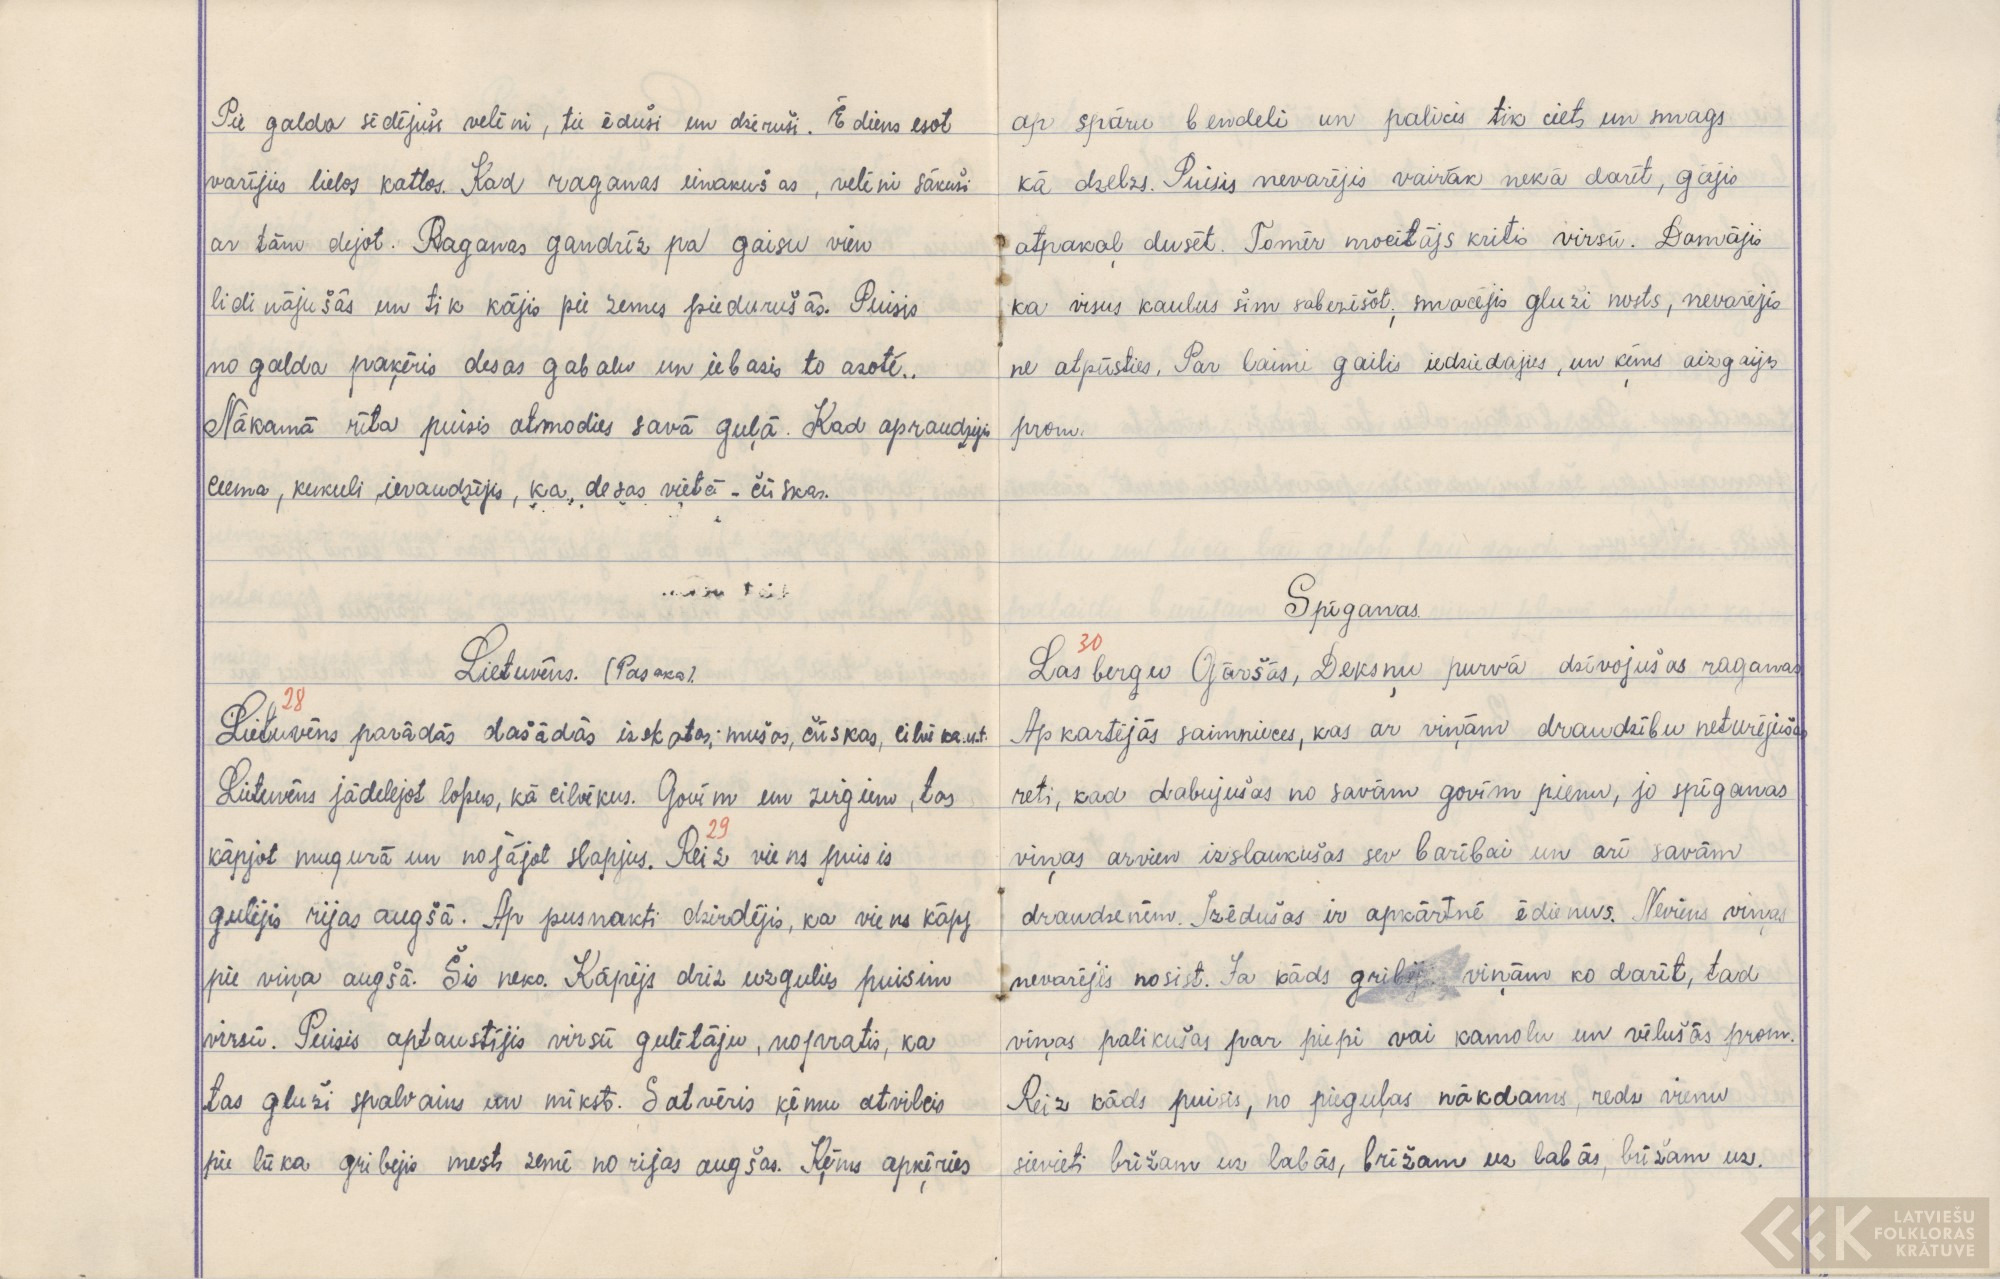 Pie galda sēdējuši velēni, tie ēduši un dzēruši. Ēdiens esot
varījies lielos katlos. Kad raganas ienākušas, velēni sākuši
ar tām dejot. Raganas gandrīz pa gaisu vien
lidinājušās un tik kājis pie zemes piedurušās. Puisis
no galda paķēris desas gabalu un iebāzis to azotē..
Nākamā rīta puisis atmodies savā guļā. Kad apraudzījis
ciema, kukuli ievaudzījis, ka desas vietā - čūskas.
Lietuvēns. (Pasaka).
28
Lietuvēns parādās dašādās izskatos; mušas, čūskas, cilvēka.u.t.
Lietuvēns jādelējot lopus, kā cilvēkus. Govīm un zirgiem, tas
kāpjot mugurā un nojājot slapjus. Reiz viens puisis
29
gulējis rijas augšā. Ap pusnakti dzirdējis, ka viens kāpj
pie viņa augšā. Šis neko. Kāpējs drīz uzgulies puisim
virsū. Puisis aptaustījis virsū gulētāju, nopratis, ka
tas gluži spalvains un mīksts. Satvēris ķēmu atvilcis
pie lūka gribējis mests zemē no rijas augšas. Ķēms apķēries
ap spāru bendeli un palicis tik ciets un smags
kā dzelzs. Puisis nevarējis vairāk nekā darīt, gājis
atpakaļ dusēt. Tomēr mocītājs kritis virsū. Domājis
ka visus kaulus šim saberžšot, smacējis gluži nosts, nevarējis
ne atpūsties. Par laimi gailis iedziedajies, un ķēms aizgaijs
prom.
Spīganas.
30
Lasbergu Gāršās, Dekšņu purvā dzīvojušas raganas
Apkārtējās saimnieces, kas ar viņām draudzību neturējušas
reti, kad dabujušas no savām govīm pienu, jo spīganas
viņas arvien izslaukušas sev barībai un arī savām
draudzenēm. Izēdušas ir apkārtnē ēdienus. Neviens viņas
nevarējis nosist. Ja kāds gribēj. viņām ko darīt, tad
viņas palikušas par piepi vai kamolu un vēlušās prom.
Reiz kāds puisis, no pieguļas nākdams, redz vienu
sievieti brīžam uz labās, brīžam uz labās, brīžam uz.
LATVIEŠU
FOLKLORAS
KRĀTUVE